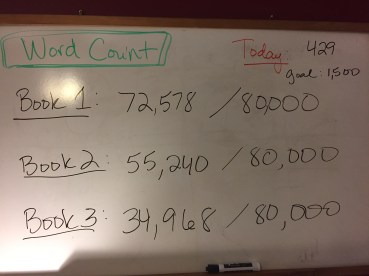 Word Count
Today 429
goal: 1,500
Book 1: 72,578 / 80,000
Book 2: 55,240 / 80,000
Book 3: 34,968 / 80,000